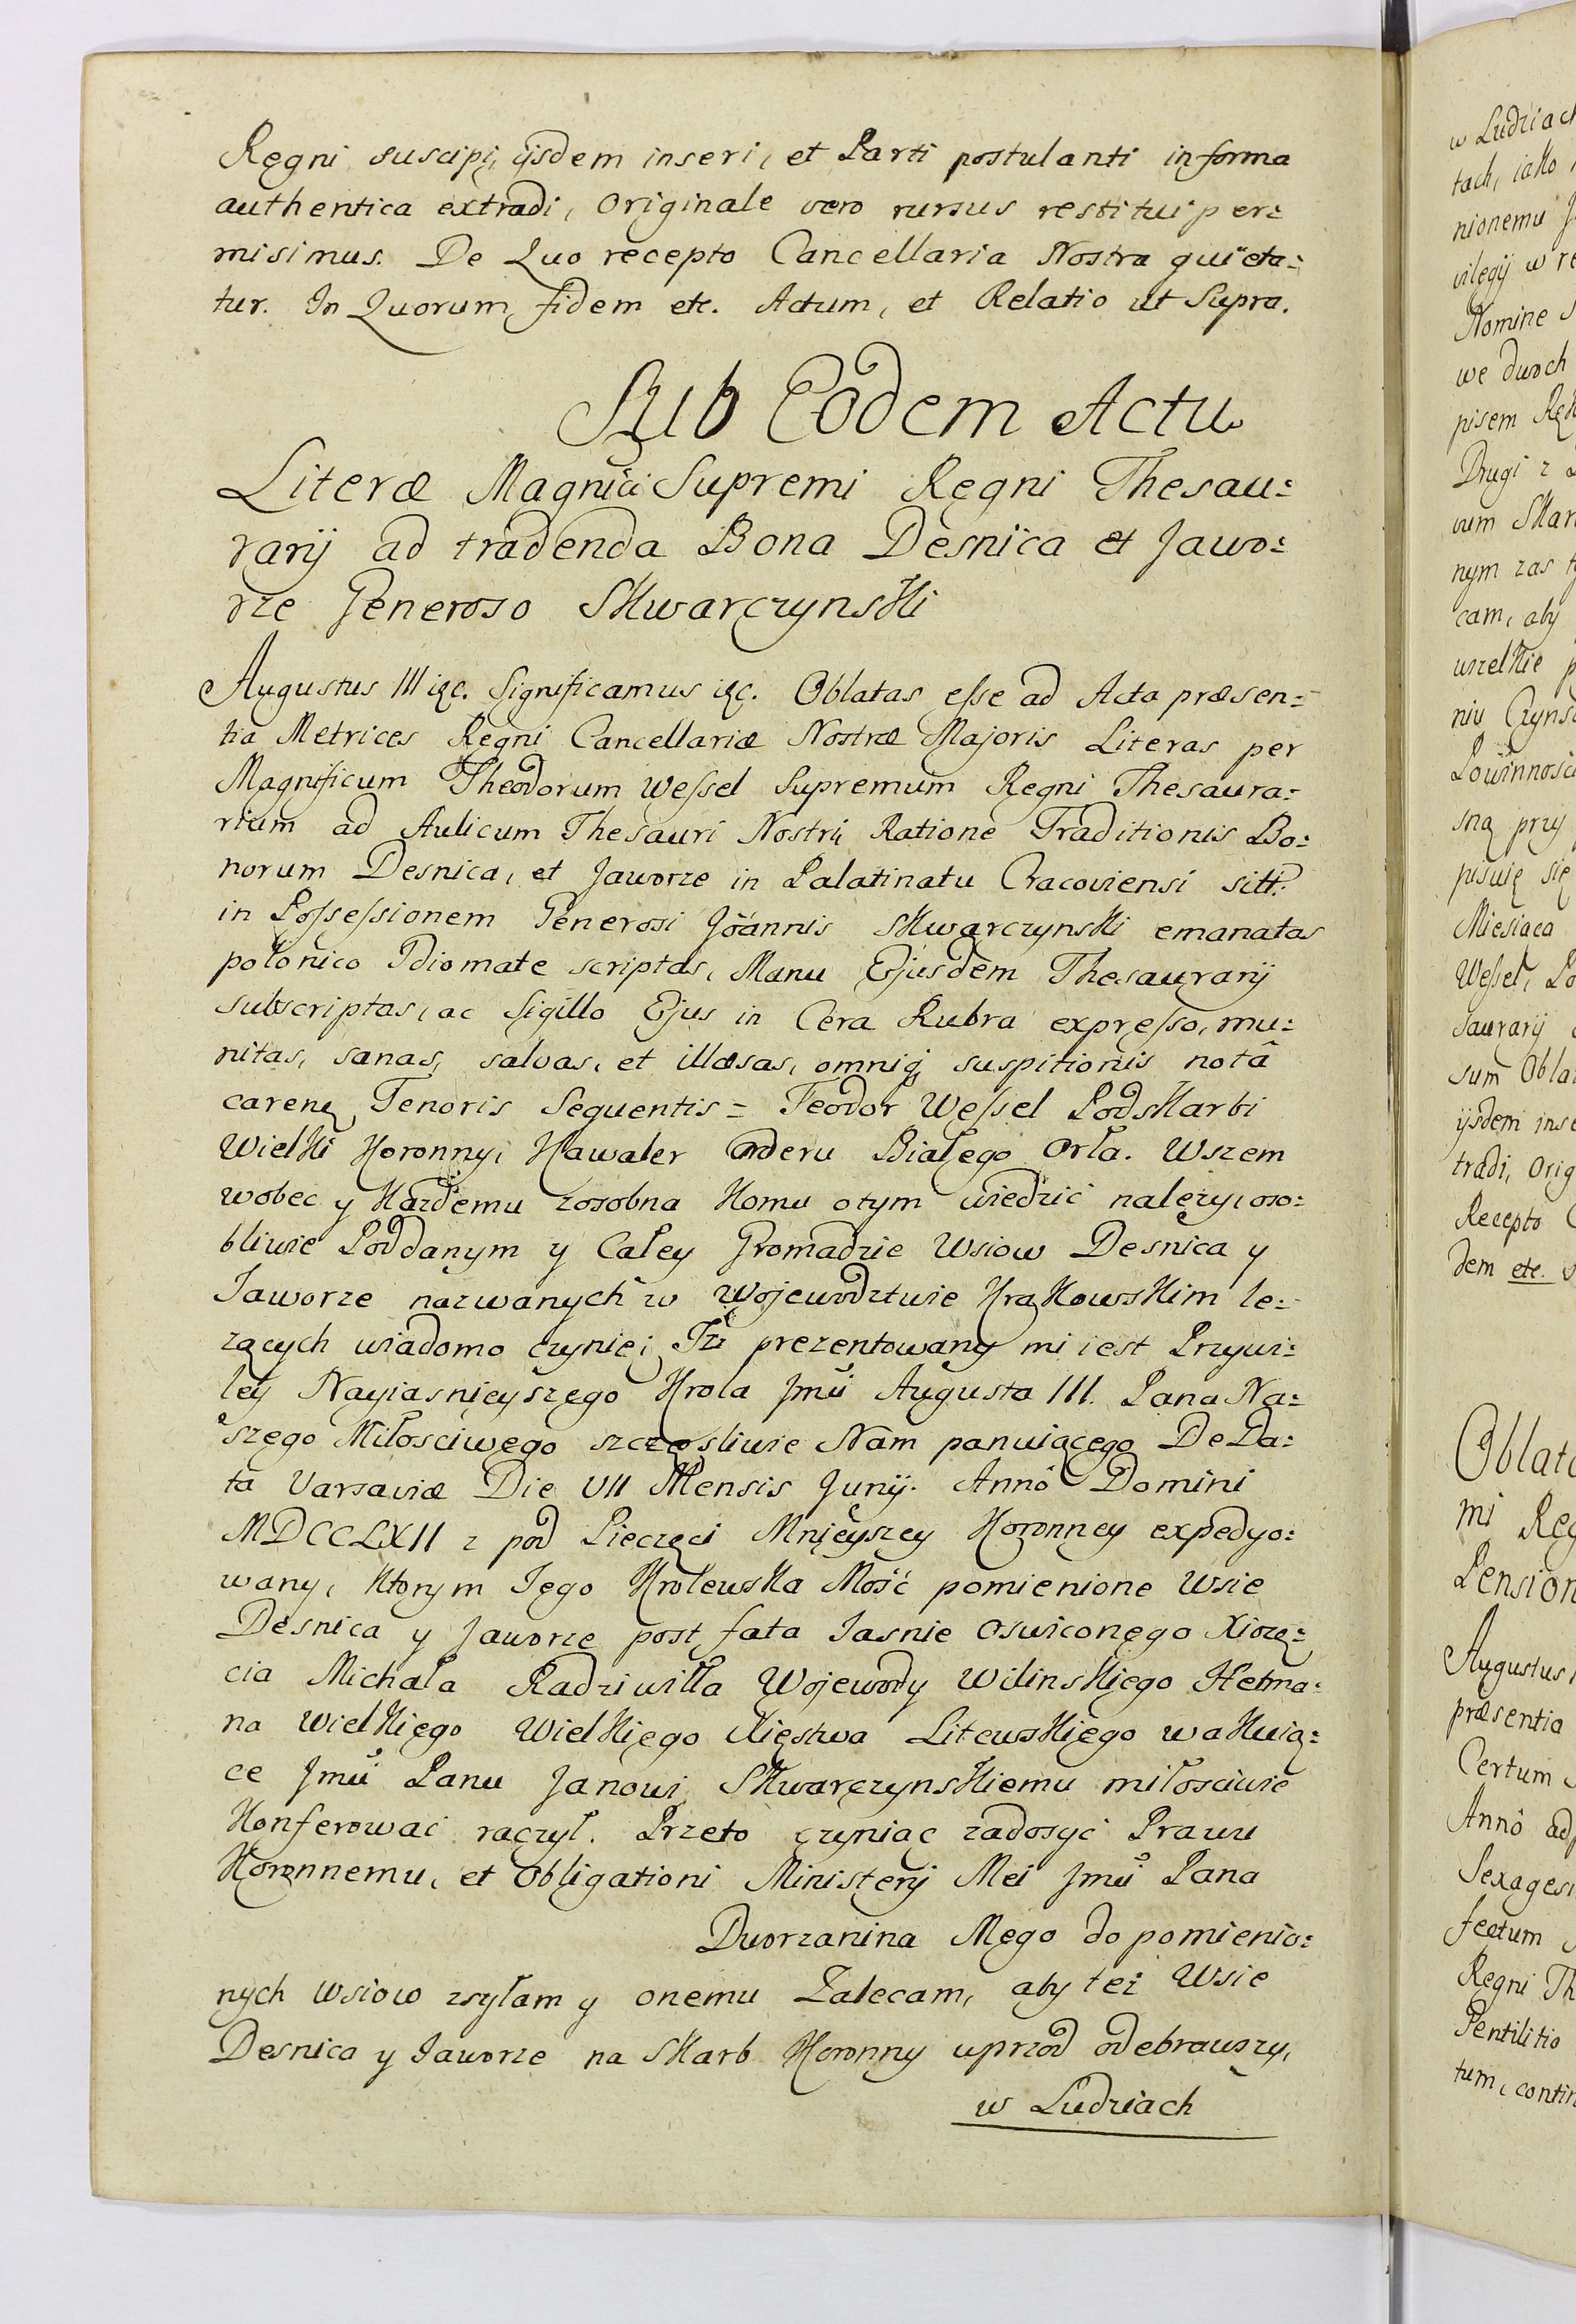 Regni suscipi, ijsdem inseri, et Parti postulanti in forma
authentica extradi, Originale vero rursus restitui per=
misimus. De Quo recepto Cancellaria Nostra quieta=
tur. In Quorum fidem etc. Actum, et Relatio ut Supra.
Sub Eodem Actu
Literæ Magnĩci Supremi Regni Thesau=
rarij ad tradenda Bona Desnica et Jawo=
rze Generoso Skwarczynski
Augustus III &c. Significamus &c. Oblatas esse ad Acta præsen=
tia Metrices Regni Cancellariæ Nostræ Majoris Literas per
Magnificum Theodorum Wessel Supremum Regni Thesaura=
rium ad Aulicum Thesauri Nostri Ratione Traditionis Bo=
norum Desnica, et Jaworze in Palatinatu Cracoviensi sitt.
in Possessionem Generosi Joannis Skwarczynski emanatas
polonico Idiomate scriptas, Manu Ejusdem Thesaurarij
subscriptas, ac Sigillo Ejus in Cera Rubra expresso, mu=
nitas, sanas, salvas, et illæsas, omniq; suspitionis notâ
caren: Tenoris Sequentis = Teodor Wessel Podskarbi
Wielki Koronny, Kawaler Orderu Białego Orła. Wszem
wobec y każdemu zosobna komu o tym wiedzić należy, oso=
bliwie Poddanym y Całey Gromadzie Wsiow Desnica y
Jaworze nazwanych w Wojewodztwie Krakowskim le=
zących wiadomo czynię; Iż prezentowany mi iest Przywi=
ley Nayiasnieyszego Krola Jmũ Augusta III. Pana Na=
szego Miłosciwego szczęsliwie Nam panuiącego De Da=
ta Varsaviæ Die VII Mensis Junij. Annô Domini
MDCCLXII z pod Pieczęci Mnieyszey Koronney expedyo=
wany, ktorym Jego Krolewska Mość pomienione Wsie
Desnica y Jaworze post fata Jasnie Oswiconego Xiożę=
cia Michała Radziwiłła Wojewody Wilinskiego Hetma=
na Wielkiego Wielkiego Xięstwa Litewskiego wakuią=
ce Jmũ Panu Janowi Skwarczynskiemu miłosciwie
konferować raczył. Przeto czyniąc zadosyć Prawu
Koronnemu, et Obligationi Ministerij Mei Jmũ Pana
Dworzanina Mego do pomienio=
nych Wsiow zsyłam y onemu Zalecam, aby też Wsie
Desnica y Jaworze na Skarb Koronny uprzod odebrawszy,
w Ludziach
w Ludziach
tach, iako
nionemu
vilegij w
Nomine
we dwoch
pisem
Drugi z
nym zas
cam, aby
wszelkie
Powinnosci
sną przy
pisuię się
Miesiaca
Wessel,
saurarij
sum
ijsdem
tradi,
Recepto
dem etc.
mi
Augustus
præsentia
Certum
Annô
fectum
Regni
Gentilitio
tum,